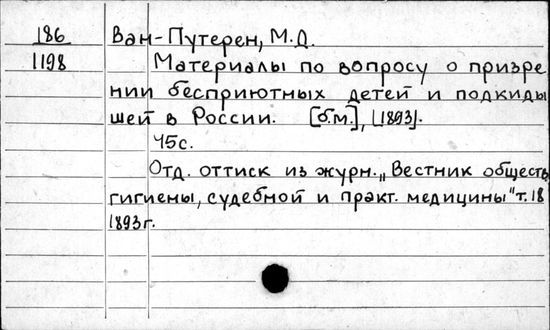 186 Ван-Путерен, М.Д.
1198 Материалы по вопросу о призре
нии бесприютных детей и подкиды
шей в России. [б.м.], [1893].
45с.
Отд. оттиск из журн. „Вестник обществ.
гигиены, судебной и практ. медицины" т. 18
1893г.